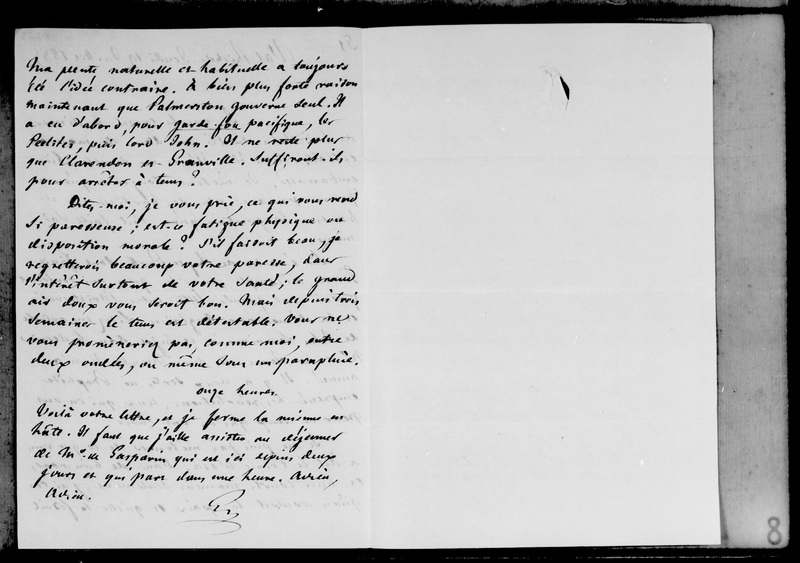 ma pente naturelle et habituelle a toujours
été l'idée contraire. À bien plus forte raison
maintenant que Palmerston gouverne seul. Il
a eu d'abord, pour garde-fou pacifique, les
Peelites, puis lord John. Il ne reste plus
que Clarendon et Granville. Suffiront-ils
pour arrêter à tems?
Dites-moi, je vous prie, ce qui vous rend
si paresseuse; est-ce fatigue physique ou
disposition morale? S'il faisoit beau, je
regretterois beaucoup votre paresse, dans
l'intérêt surtout de votre santé; le grand
air doux vous seroit bon. Mais depuis trois
semaines le tems est détestable. Vous ne
vous promèneriez pas, comme moi, entre
deux ondées, ou même sous un parapluie.
onze heures.
Voilà votre lettre, et je ferme la mienne en
hâte. Il faut que j'aille assister au déjeuner
de Mr. de Gasparin qui est ici depuis deux
jours et qui part dans une heure. Adieu,
Adieu.
G
8